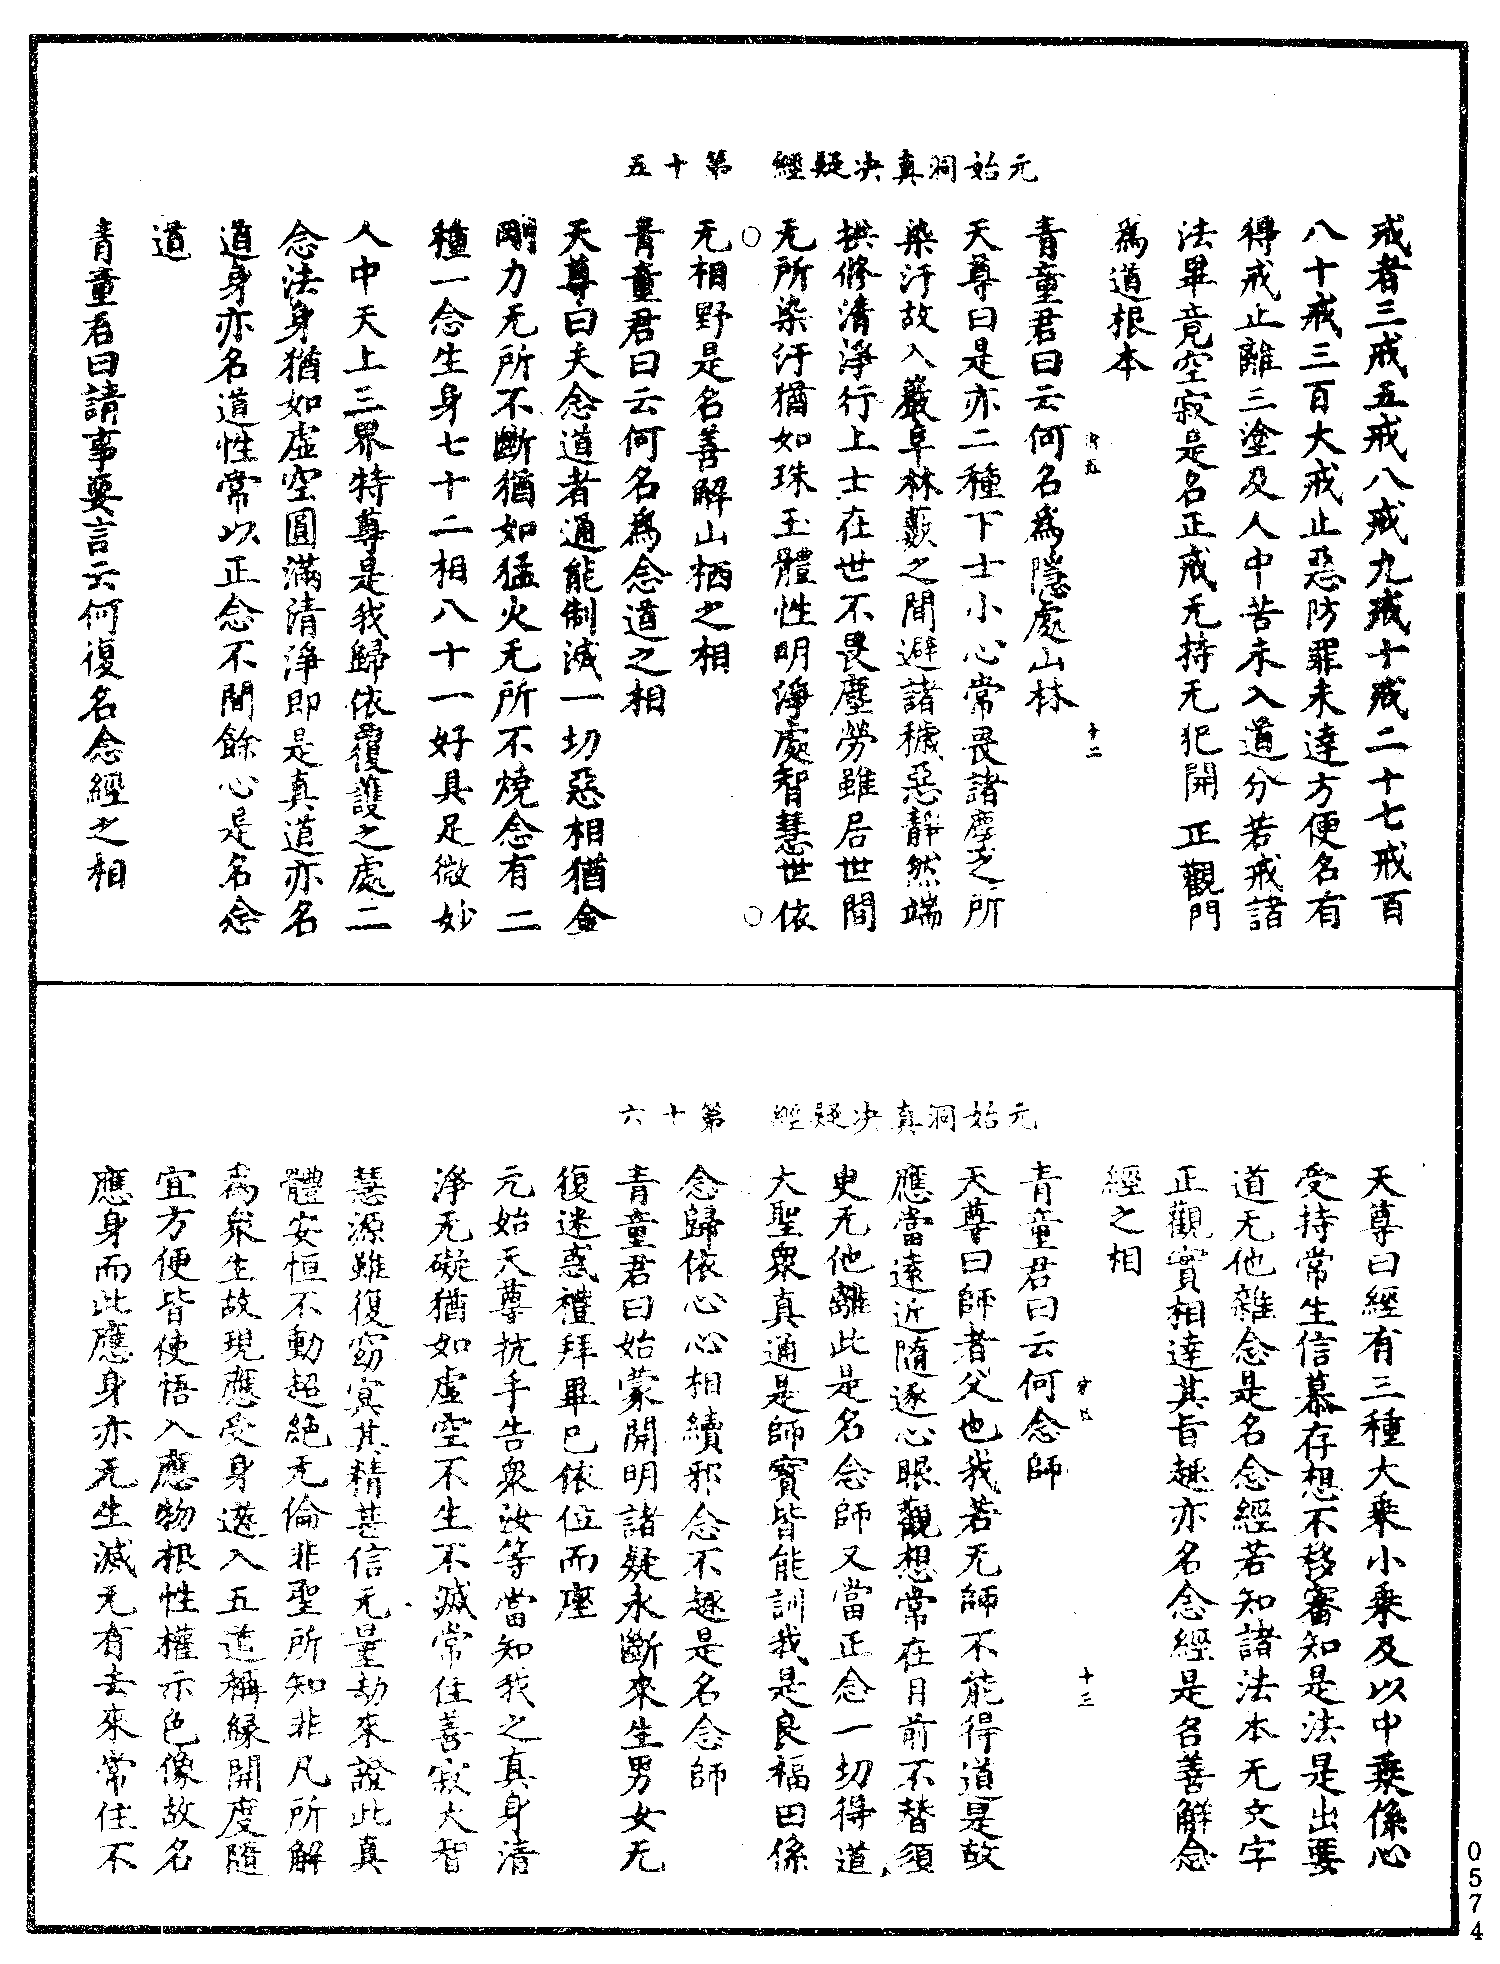 元始洞真決疑經　第十五
戒者三戒五戒八戒九戒十戒二十七戒百
八十戒三百大戒止惡防罪未達方便名有
得戒止離三塗及人中苦未入道分若戒諸
法畢竟空寂是名正戒无持无犯開正觀門
為道根本
十二
青童君曰云何名為隱處山林
天尊曰是亦二種下士小心常畏諸塵之所
染汙故入巖阜林藪之間避諸穢惡靜然端
拱修清淨行上士在世不畏塵勞雖居世間
无所染汙猶如珠玉體性明淨處智慧世依
无相野是名善解山栖之相
青童君曰云何名為念道之相
天尊曰夫念道者通能制滅一切惡相猶金
剛力无所不斷猶如猛火无所不燒念有二
種一念生身七十二相八十一好具足微妙
人中天上三界特尊是我歸依覆護之處二
念法身猶如虛空圓滿清淨即是真道亦名
道身亦名道性常以正念不間餘心是名念
道
青童君曰請事要言云何復名念經之相
元始洞真決疑經　第十六
天尊曰經有三種大乘小乘及以中乘係心
受持常生信慕存想不移審知是法是出要
道无他雜念是名念經若知諸法本无文字
正觀實相達其旨趣亦名念經是名善解念
經之相
十三
青童君曰云何念師
天尊曰師者父也我若无師不能得道是故
應當遠近隨逐心眼觀想常在目前不替須
臾无他離此是名念師又當正念一切得道
大聖眾真通是師寶皆能訓我是良福田係
念歸依心心相續邪念不趣是名念師
青童君曰始蒙開明諸疑永斷來生男女无
復迷惑禮拜畢已依位而座
元始天尊抗手告眾汝等當知我之真身清
淨无礙猶如虛空不生不滅常住善寂大智
慧源雖復窈冥其精甚信无量劫來證此真
體安恒不動超絕无倫非聖所知非凡所解
為眾生故現應受身遂入五道稱緣開度隨
宜方便皆使悟入應物根性權示色像故名
應身而此應身亦无生滅无有去來常住不
0574